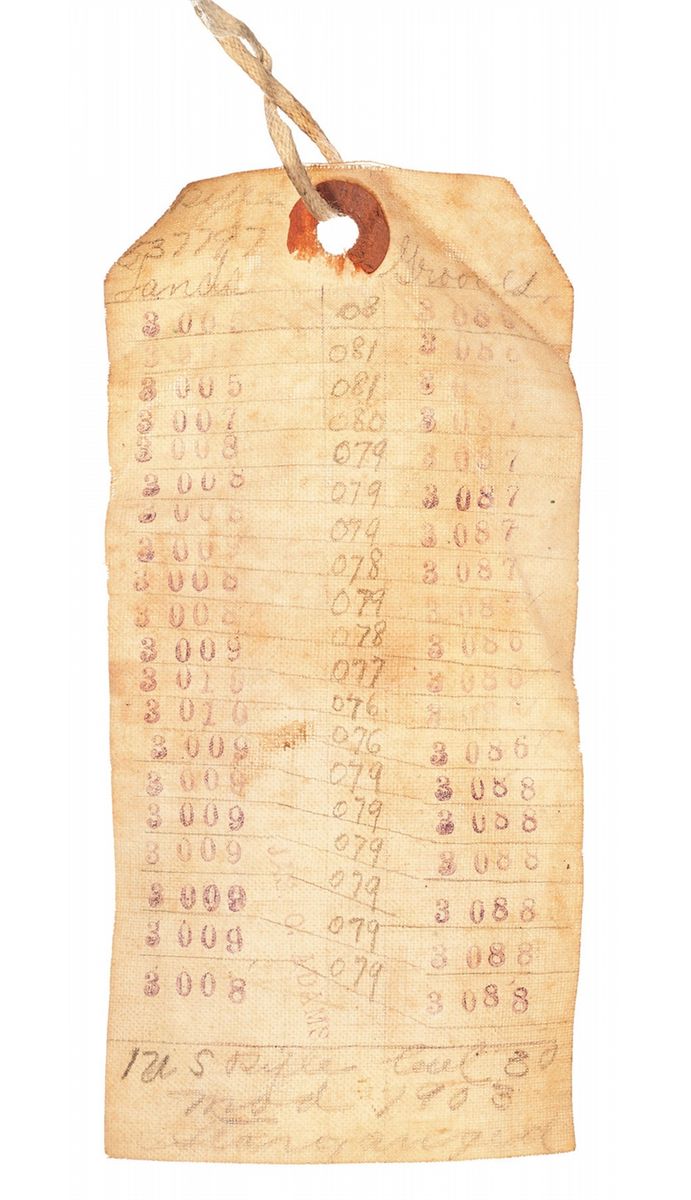 37797
Lands Grooves,
3 00 08 3 08
081 3 086
3 005 081 3
3 007 080 3 087
3 008 079 3 087
3 008 079 3 087
3 008 079 3 087
3 00 078 3 087
3 008 079 3 08
3 008 078 3 086
3 009 077 3 086
3 010 076
3 010 076 3 086
3 009 079 3 088
3 009 079 3 088
3 009 079 3 088
3 009 079 3 088
3 009 079 3 088
3 009 079 3 088
3 008
O. ADAMS
1 U S Rifle Cal 30
Mod 1903
Star gauged